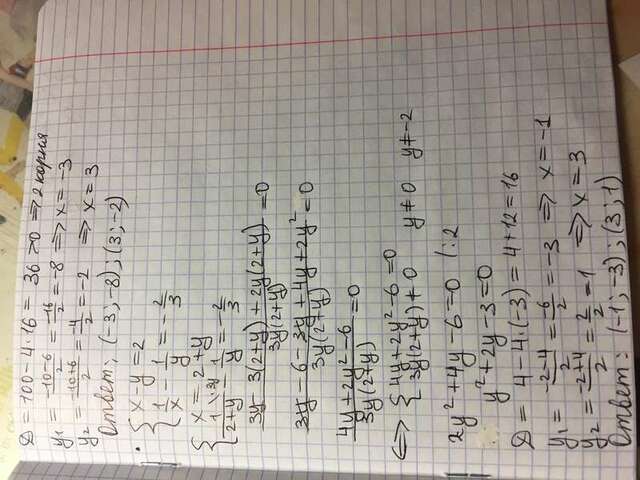 D = 100 - 4·16 = 36 > 0 ⇒ 2 корня
y₁ = (-10-6)/2 = -16/2 = -8 ⇒ x = -3
y₂ = (-10+6)/2 = -4/2 = -2 ⇒ x = 3
Ответ: (-3; -8); (3; -2)
• { x - y = 2
{ 1/x - 1/y = -2/3
{ x = 2 + y
{ 1/(2+y) \3y - 1/y = -2/3
(3y - 3(2+y) + 2y(2+y))/(3y(2+y)) = 0
(3y - 6 - 3y + 4y + 2y²)/(3y(2+y)) = 0
(4y + 2y² - 6)/(3y(2+y)) = 0
⇔ { 4y + 2y² - 6 = 0
{ 3y(2+y) ≠ 0 y ≠ 0 y ≠ -2
2y² + 4y - 6 = 0 |:2
y² + 2y - 3 = 0
D = 4 - 4·(-3) = 4 + 12 = 16
y₁ = (-2-4)/2 = -6/2 = -3 ⇒ x = -1
y₂ = (-2+4)/2 = 2/2 = 1 ⇒ x = 3
Ответ: (-1; -3); (3; 1)